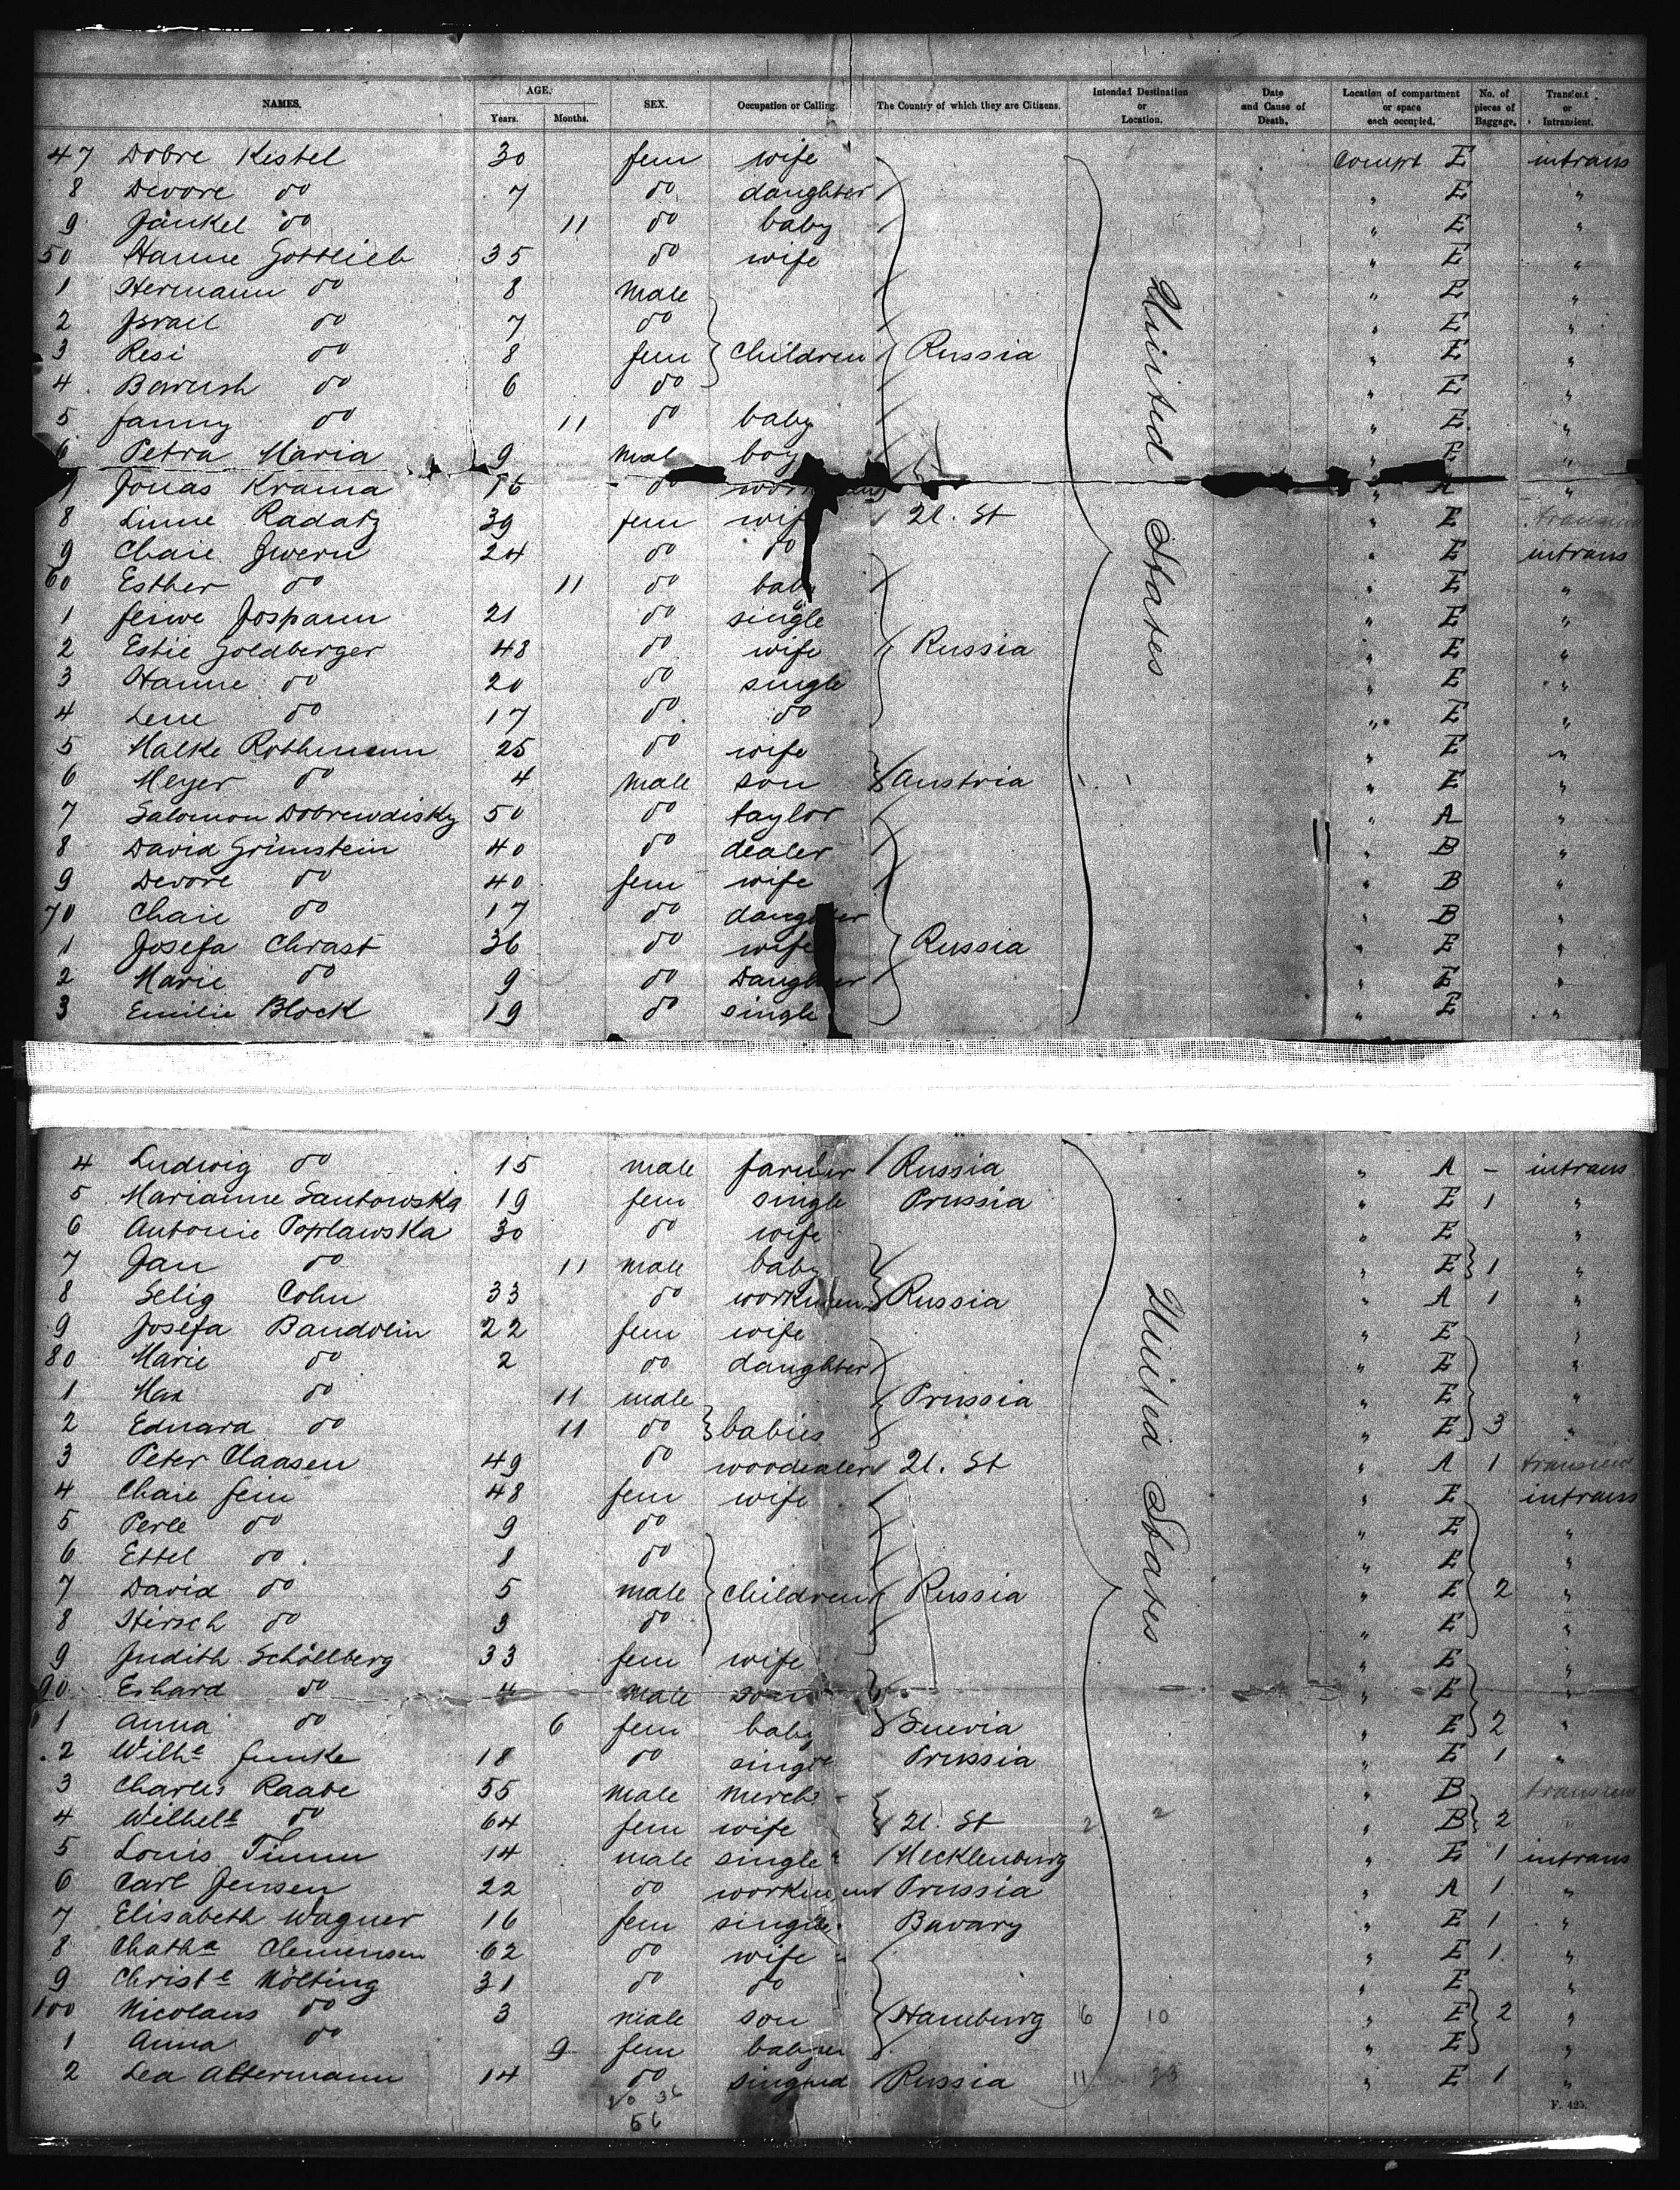 NAMES. AGE. Years. Months. SEX. Occupation or Calling. The Country of which they are Citizens. Intended Destination or Location. Date and Cause of Death. Location of compartment or space each occupied. No. of pieces of Baggage. Transient or Intransient.
47 Dobre Kestel 30 fem wife compt E intrans
8 Devore do 7 do daughter " E "
9 Jankel do 11 do baby " E "
50 Hanne Gottlieb 35 do wife " E "
1 Hermann do 8 male " E "
2 Israel do 7 do " E "
3 Resi do 8 fem children Russia " E "
4 Barush do 6 do " E "
5 Fanny do 11 do baby " E "
6 Petra Maria 9 mal boy " E "
Jonas Krama 16 do " A "
8 Linne Radatz 39 fem wife U. St " E transient
9 Chaie Jwern 24 do do " E intrans
60 Esther do 11 do baby " E "
1 Feiwe Jospann 21 do single " E "
2 Estie Goldberger 48 do wife Russia " E "
3 Hanne do 20 do single " E "
4 Lene do 17 do do " E "
5 Malke Rothmann 25 do wife " E "
6 Meyer do 4 male son Austria " E "
7 Salomon Dobrewdisky 50 do taylor " A "
8 David Grünstein 40 do dealer " B "
9 Devore do 40 fem wife " B "
70 Chaie do 17 do daughter " B "
1 Josefa Chrast 36 do wife Russia " E "
2 Marie do 9 do Daughter " E "
3 Emilie Block 19 do single " E "
United States
4 Ludwig do 15 male farmer Russia " A - intrans
5 Marianne Santowska 19 fem single Prussia " E 1 "
6 Antonie Poplawska 30 do wife " E "
7 Jan do 11 male baby " E 1 "
8 Selig Cohn 33 do workmen Russia " A 1 "
9 Josefa Bandolin 22 fem wife " E "
80 Marie do 2 do daughter " E "
1 Max do 11 male Prussia " E "
2 Eduard do 11 do babies " E 3 "
3 Peter Claasen 49 do woodealer U. St " A 1 transient
4 Chaie Fein 48 fem wife " E intrans
5 Perle do 9 do " E "
6 Ettel do 8 do " E "
7 David do 5 male children Russia " E 2 "
8 Hirsch do 3 do " E "
9 Judith Schöllberg 33 fem wife " E "
90 Erhard do 4 male son " E "
1 Anna do 6 fem baby Suevia " E 2 "
2 Wilhe Funke 18 do single Prussia " E 1 "
3 Charles Raabe 55 male merch B transient
4 Wilhele do 64 fem wife U. St 2 2 " B 2
5 Louis Timm 14 male single Mecklenburg " E 1 intrans
6 Carl Jensen 22 do workmen Prussia " A 1 "
7 Elisabeth Wagner 16 fem single Bavary " E 1 "
8 Chatha Clemensen 62 do wife " E 1 "
9 Christe Nölting 31 do do " E "
100 Nicolaus do 3 male son Hamburg 6 10 " E 2 "
1 Anna do 9 fem baby " E "
2 Lea Altermann 14 do Russia 11 " E 1 "
United States
56
F. 425.